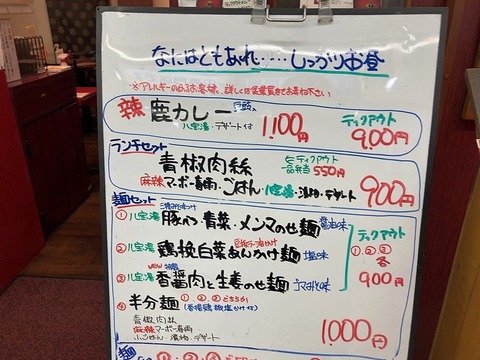 なにはともあれ……しっかりお昼
※アレルギーのあるお客様、詳しくは従業員までお尋ね下さい
辣 鹿カレー
八宝湯・デザート付
1,100円
テイクアウト
900円
ランチセット
青椒肉絲
テイクアウト
一品弁当 550円
麻辣マーボー春雨・ごはん・八宝湯・漬物・デザート
900円
麺セット
①八宝湯 豚バラ青菜・メンマのせ麺 醤油味
②八宝湯 鶏挽白菜あんかけ麺 塩味
NEW
③八宝湯 香醤肉と生姜のせ麺 ゴマみそ味
テイクアウト
①.②.③
各
900円
④半分麺 ①.②.③どちらか
青椒肉絲
麻辣マーボー春雨
小ごはん・漬物・デザート
1,000円
麺 ①.②.③